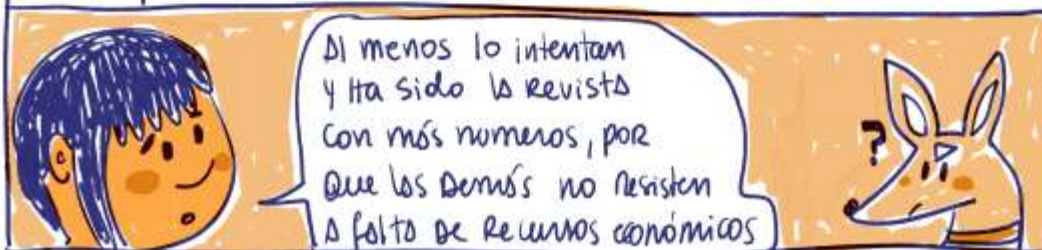 Al menos lo intentan
y Ha sido la Revista
Con más numeros, por
Que las Demás no Resisten
A falta de Recursos económicos
?